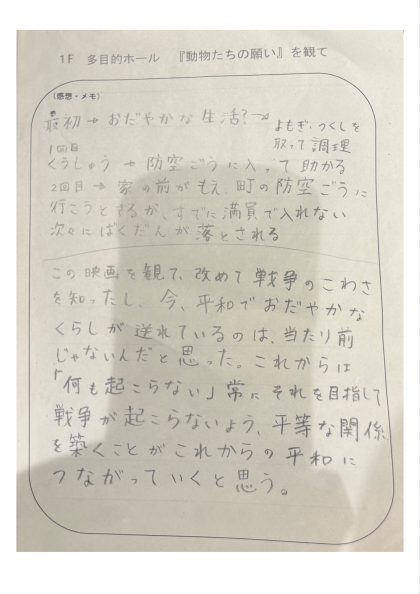 1F 多目的ホール 『動物たちの願い』を観て
(感想・メモ)
最初→おだやかな生活?→よもぎ、つくしを
取って調理
1回目
くうしゅう→防空ごうに入って助かる
2回目→家の前がもえ、町の防空ごうに
行こうとするが、すでに満員で入れない
次々にばくだんが落とされる
この映画を観て、改めて戦争のこわさ
を知ったし、今、平和でおだやかな
くらしが送れているのは、当たり前
じゃないんだと思った。これからは
「何も起こらない」常にそれを目指して
戦争が起こらないよう、平等な関係
を築くことがこれからの平和に
つながっていくと思う。